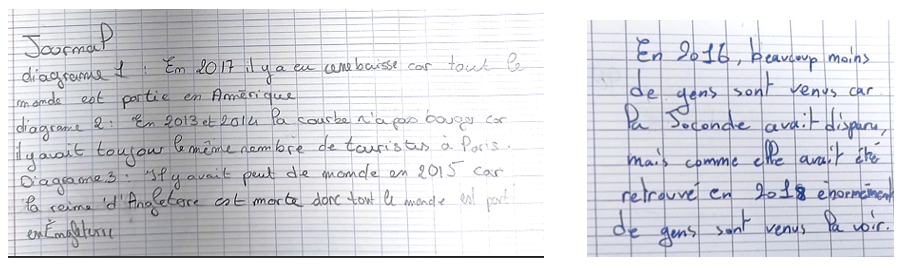 Journal
diagrame 1 : En 2017 il y a eu une baisse car tout le
monde est partie en Amérique
diagrame 2 : En 2013 et 2014 la courbe n'a pas bouger car
il y avait toujour le même nombre de touristes à Paris.
Diagrame 3 : Il y avait peut de monde en 2015 car
la reine d'Angleterre est morte donc tout le monde est parti
en Engleterre
En 2016, beaucoup moins
de gens sont venus car
la Joconde avait disparu,
mais comme elle avait été
retrouvé en 2018 énormément
de gens sont venus la voir.